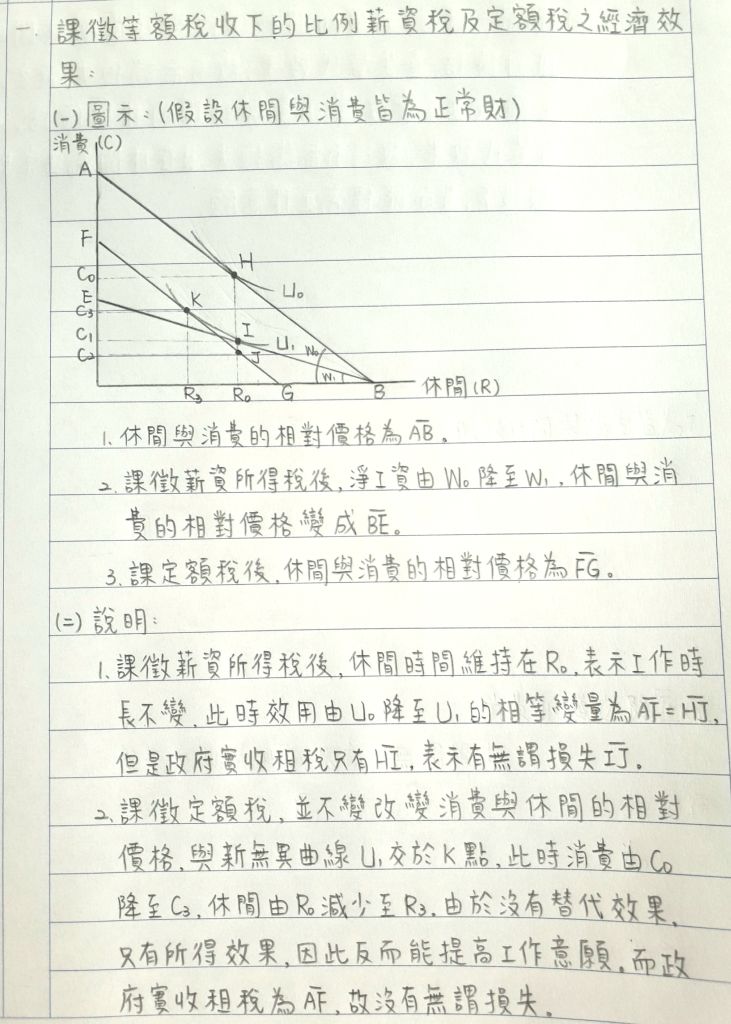 一、課徵等額稅收下的比例薪資稅及定額稅之經濟效
果：
(一) 圖示：(假設休閒與消費皆為正常財)
消費(C)
A
F
H
C₀
U₀
E
K
C₃
I
C₁
U₁
W₀
J
C₂
W₁
R₃
R₀
G
B
休閒(R)
1. 休閒與消費的相對價格為A̅B̅。
2. 課徵薪資所得稅後，淨工資由W₀降至W₁，休閒與消
費的相對價格變成B̅E̅。
3. 課定額稅後，休閒與消費的相對價格為F̅G̅。
(二) 說明：
1. 課徵薪資所得稅後，休閒時間維持在R₀，表示工作時
長不變，此時效用由U₀降至U₁的相等變量為A̅F̅=H̅J̅，
但是政府實收租稅只有H̅I̅，表示有無謂損失I̅J̅。
2. 課徵定額稅，並不變改變消費與休閒的相對
價格，與新無異曲線U₁交於K點，此時消費由C₀
降至C₃，休閒由R₀減少至R₃，由於沒有替代效果，
只有所得效果，因此反而能提高工作意願。而政
府實收租稅為A̅F̅，故沒有無謂損失。